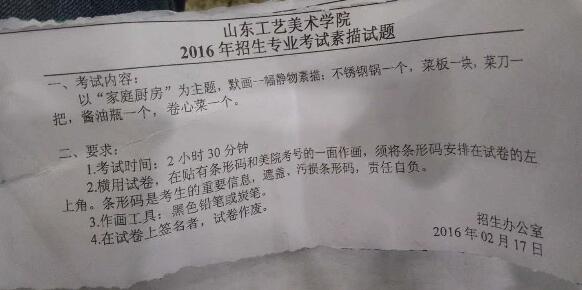 山东工艺美术学院
2016年招生专业考试素描试题
一、考试内容：
以“家庭厨房”为主题，默画一幅静物素描：不锈钢锅一个，菜板一块，菜刀一
把，酱油瓶一个，卷心菜一个。
二、要求：
1.考试时间：2小时30分钟
2.横用试卷，在贴有条形码和美院考号的一面作画，须将条形码安排在试卷的左
上角。条形码是考生的重要信息，遮盖、污损条形码，责任自负。
3.作画工具：黑色铅笔或炭笔。
4.在试卷上签名者，试卷作废。
招生办公室
2016年02月17日